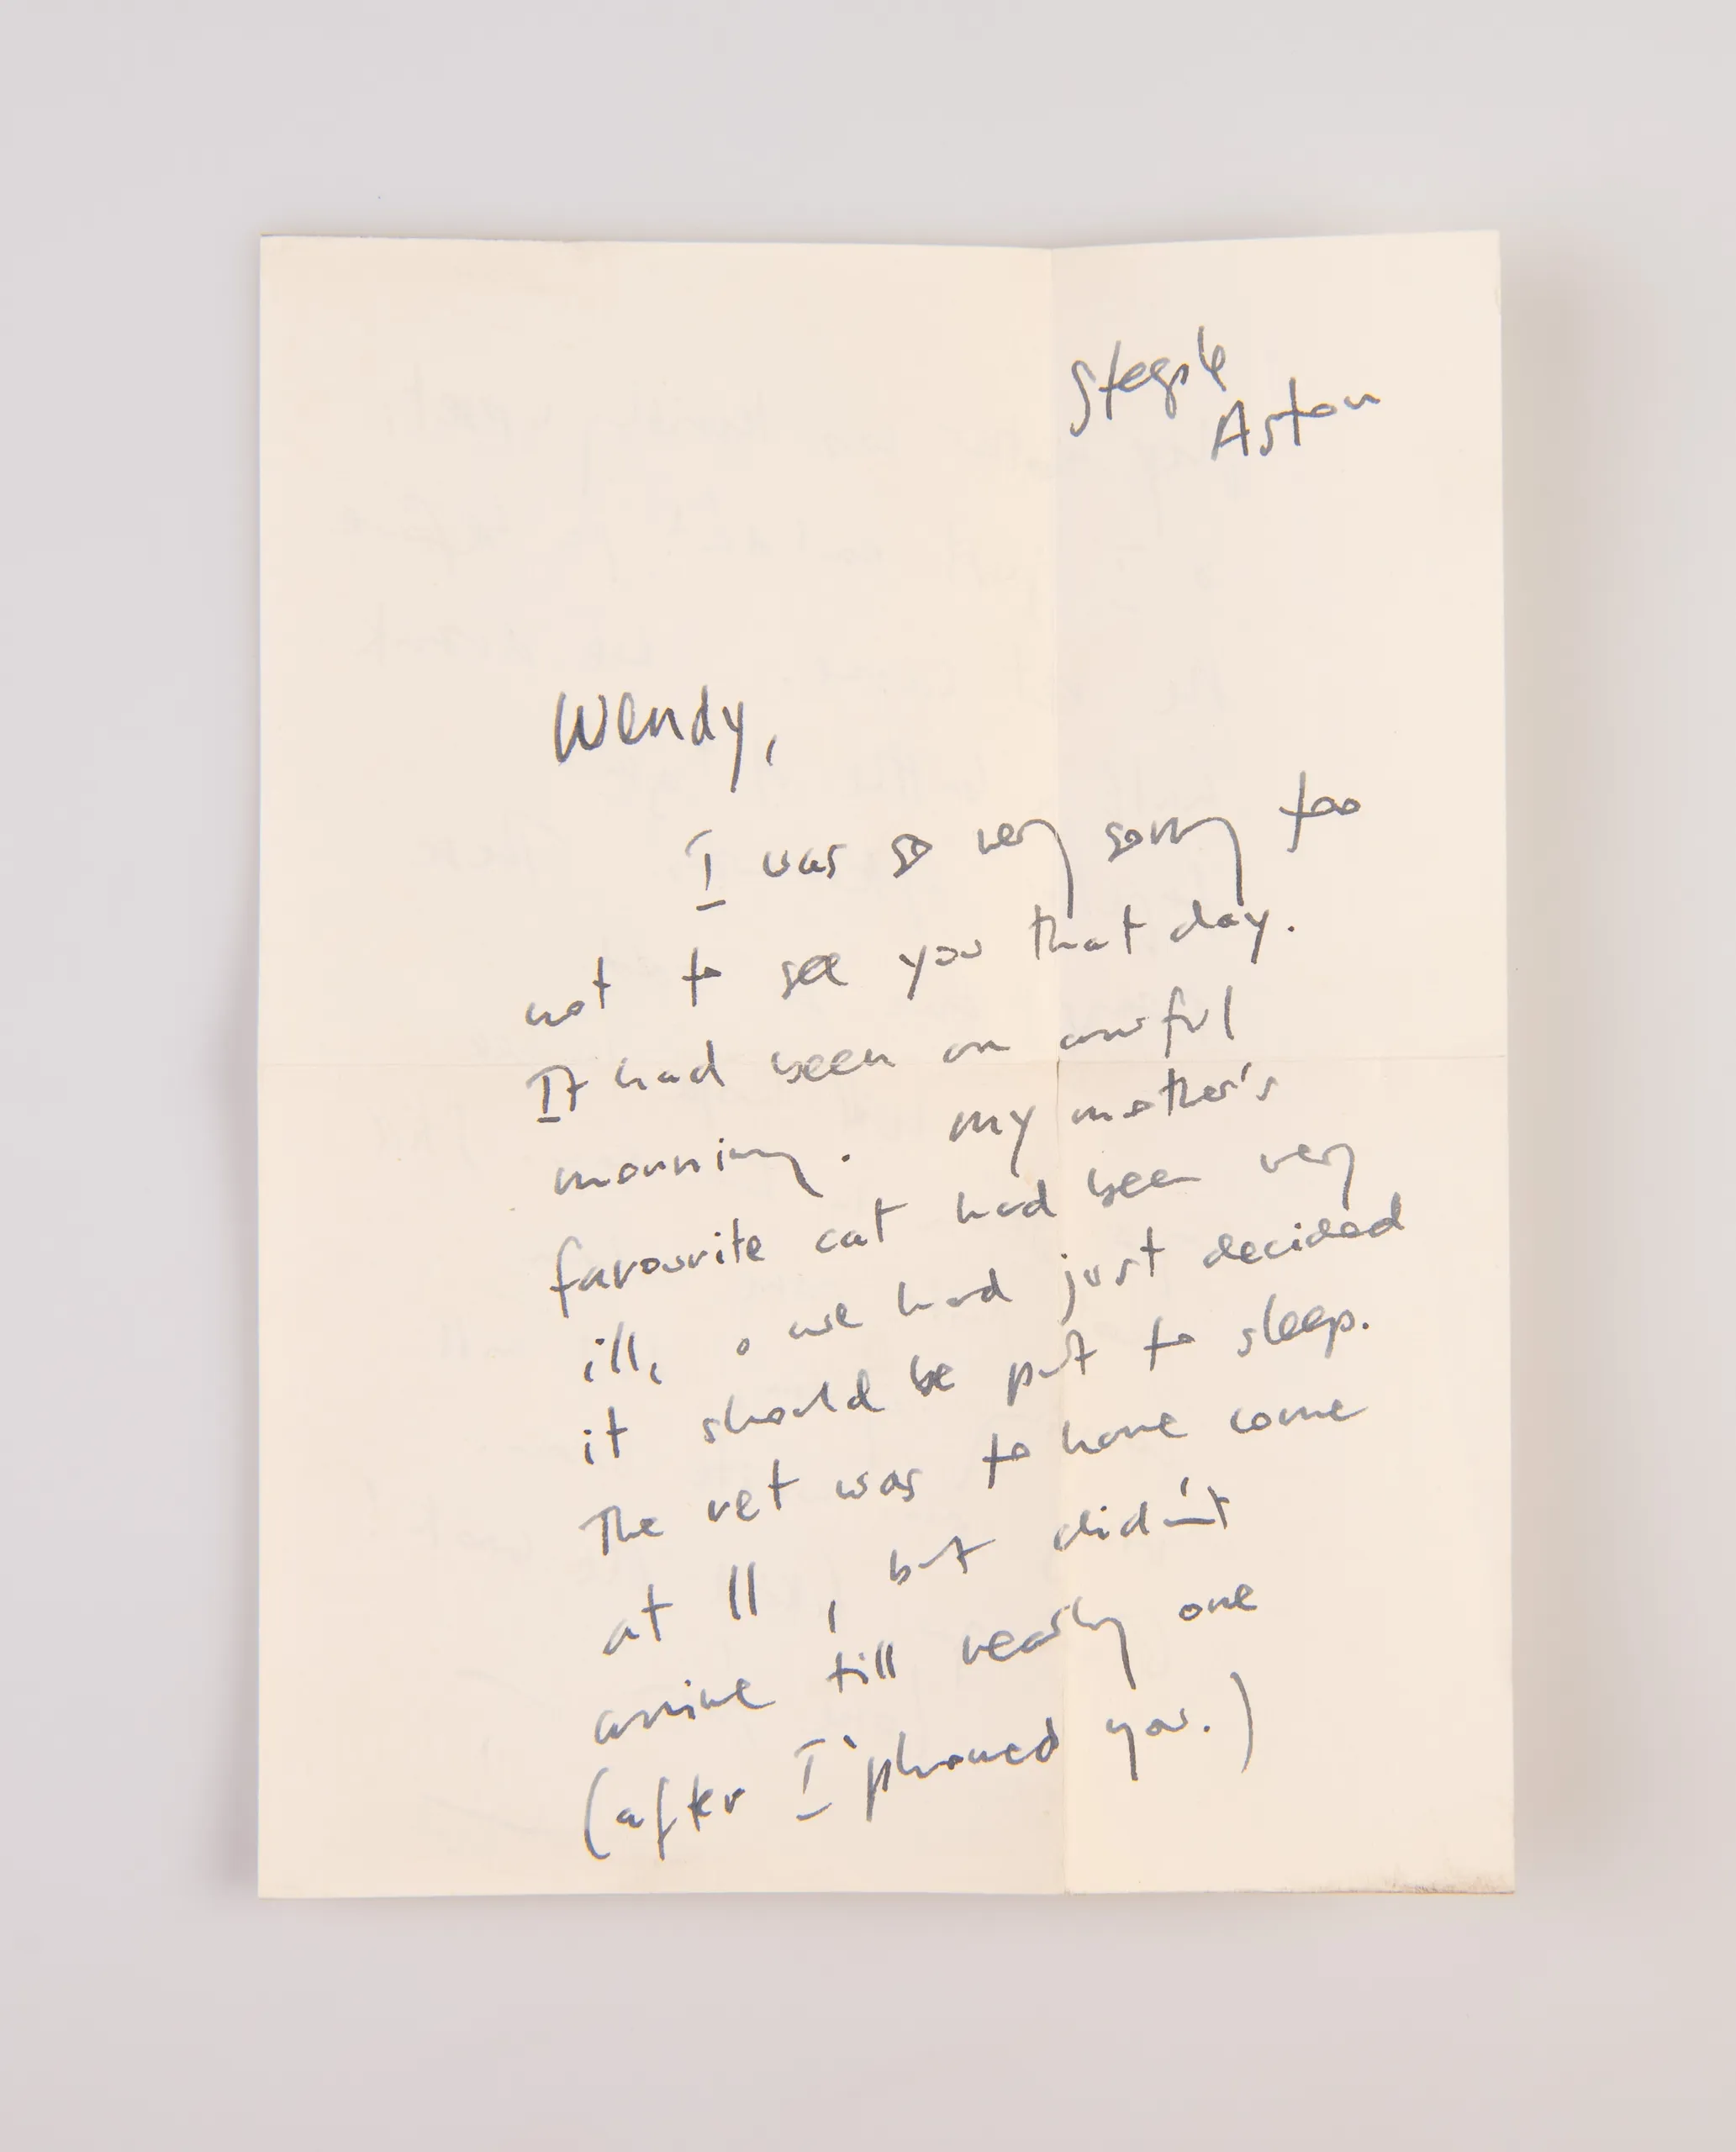 Steeple
Aston
Wendy,
I was so very sorry too
not to see you that day.
It had been an awful
morning. My mother's
favourite cat had been very
ill, & we had just decided
it should be put to sleep.
The vet was to have come
at 11, but didn't
arrive till nearly one
(after I 'phoned you.)